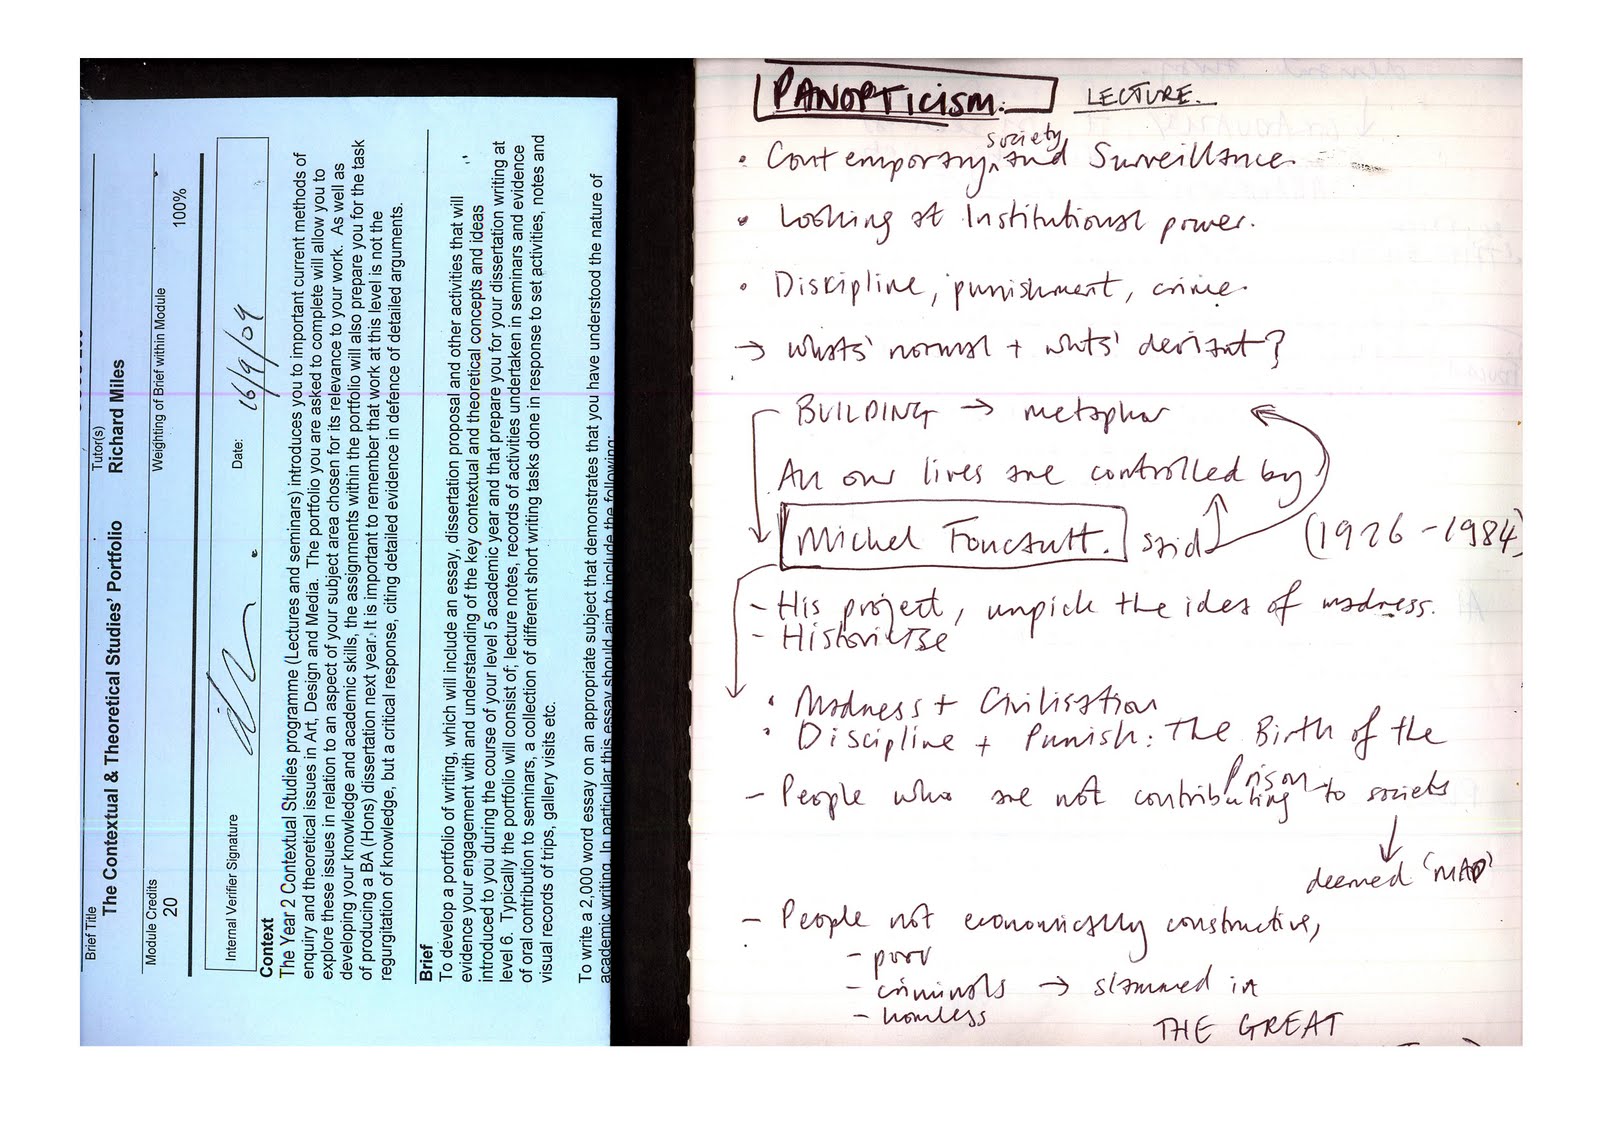 Brief Title
The Contextual & Theoretical Studies' Portfolio
Tutor(s)
Richard Miles
Module Credits
20
Weighting of Brief within Module
100%
Internal Verifier Signature
Date: 16/9/09
Context
The Year 2 Contextual Studies programme (Lectures and seminars) introduces you to important current methods of
enquiry and theoretical issues in Art, Design and Media. The portfolio you are asked to complete will allow you to
explore these issues in relation to an aspect of your subject area chosen for its relevance to your work. As well as
developing your knowledge and academic skills, the assignments within the portfolio will also prepare you for the task
of producing a BA (Hons) dissertation next year. It is important to remember that work at this level is not the
regurgitation of knowledge, but a critical response, citing detailed evidence in defence of detailed arguments.
Brief
To develop a portfolio of writing, which will include an essay, dissertation proposal and other activities that will
evidence your engagement with and understanding of the key contextual and theoretical concepts and ideas
introduced to you during the course of your level 5 academic year and that prepare you for your dissertation writing at
level 6. Typically the portfolio will consist of; lecture notes, records of activities undertaken in seminars and evidence
of oral contribution to seminars, a collection of different short writing tasks done in response to set activities, notes and
visual records of trips, gallery visits etc.
To write a 2,000 word essay on an appropriate subject that demonstrates that you have understood the nature of
academic writing. In particular this essay should aim to include the following:
PANOPTICISM. LECTURE.
• Contemporary society and Surveillance.
• Looking at Institutional power.
• Discipline, punishment, crime.
→ whats' normal + whts' deviant?
BUILDING → metaphor
All our lives are controlled by
Michel Foucault. said (1926-1984)
- His project, unpick the idea of madness.
- Historicise
• Madness + Civilisation
• Discipline + Punish: The Birth of the
Prison
- People who are not contributing to society
deemed 'MAD'
- People not economically constructive,
- poor
- criminals → slammed in
- homless
THE GREAT